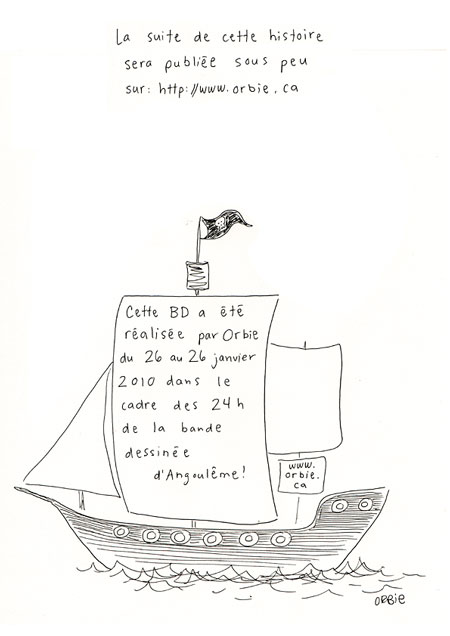 La suite de cette histoire
sera publiée sous peu
sur: http://www.orbie.ca
Cette BD a été
réalisée par Orbie
du 26 au 26 janvier
2010 dans le
cadre des 24h
de la bande
dessinée
d'Angoulême!
www.
orbie.
ca
ORBie